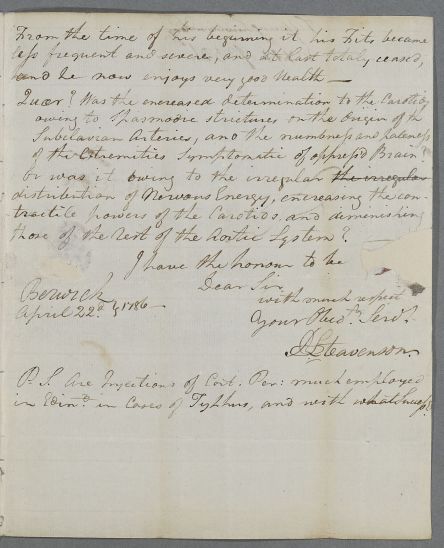 From the time of his beginning it his Fits became
less frequent and severe, and at last totaly ceased,
and he now enjoys very good Health —
Quær? Was the encreased determination to the Carotids
owing to Spasmodic strictures on the Origin of the
Subclavian Arteries, and the numbness and paleness
of the Extremities Symptomatic of oppress'd Brain?
Or was it owing to the irregular the irregular
distribution of Nervous Energy, encreasing the con-
tractile powers of the Carotids, and diminishing
those of the rest of the Aortic System?
I have the honour to be
Dear Sir
with much respect
Your Obed.t Serv.t
J Steavenson
Berwick
April 22.d 1786
P.S. Are Injections of Cort. Per: much employed
in Edin.r in Cases of Typhus, and with what Success?